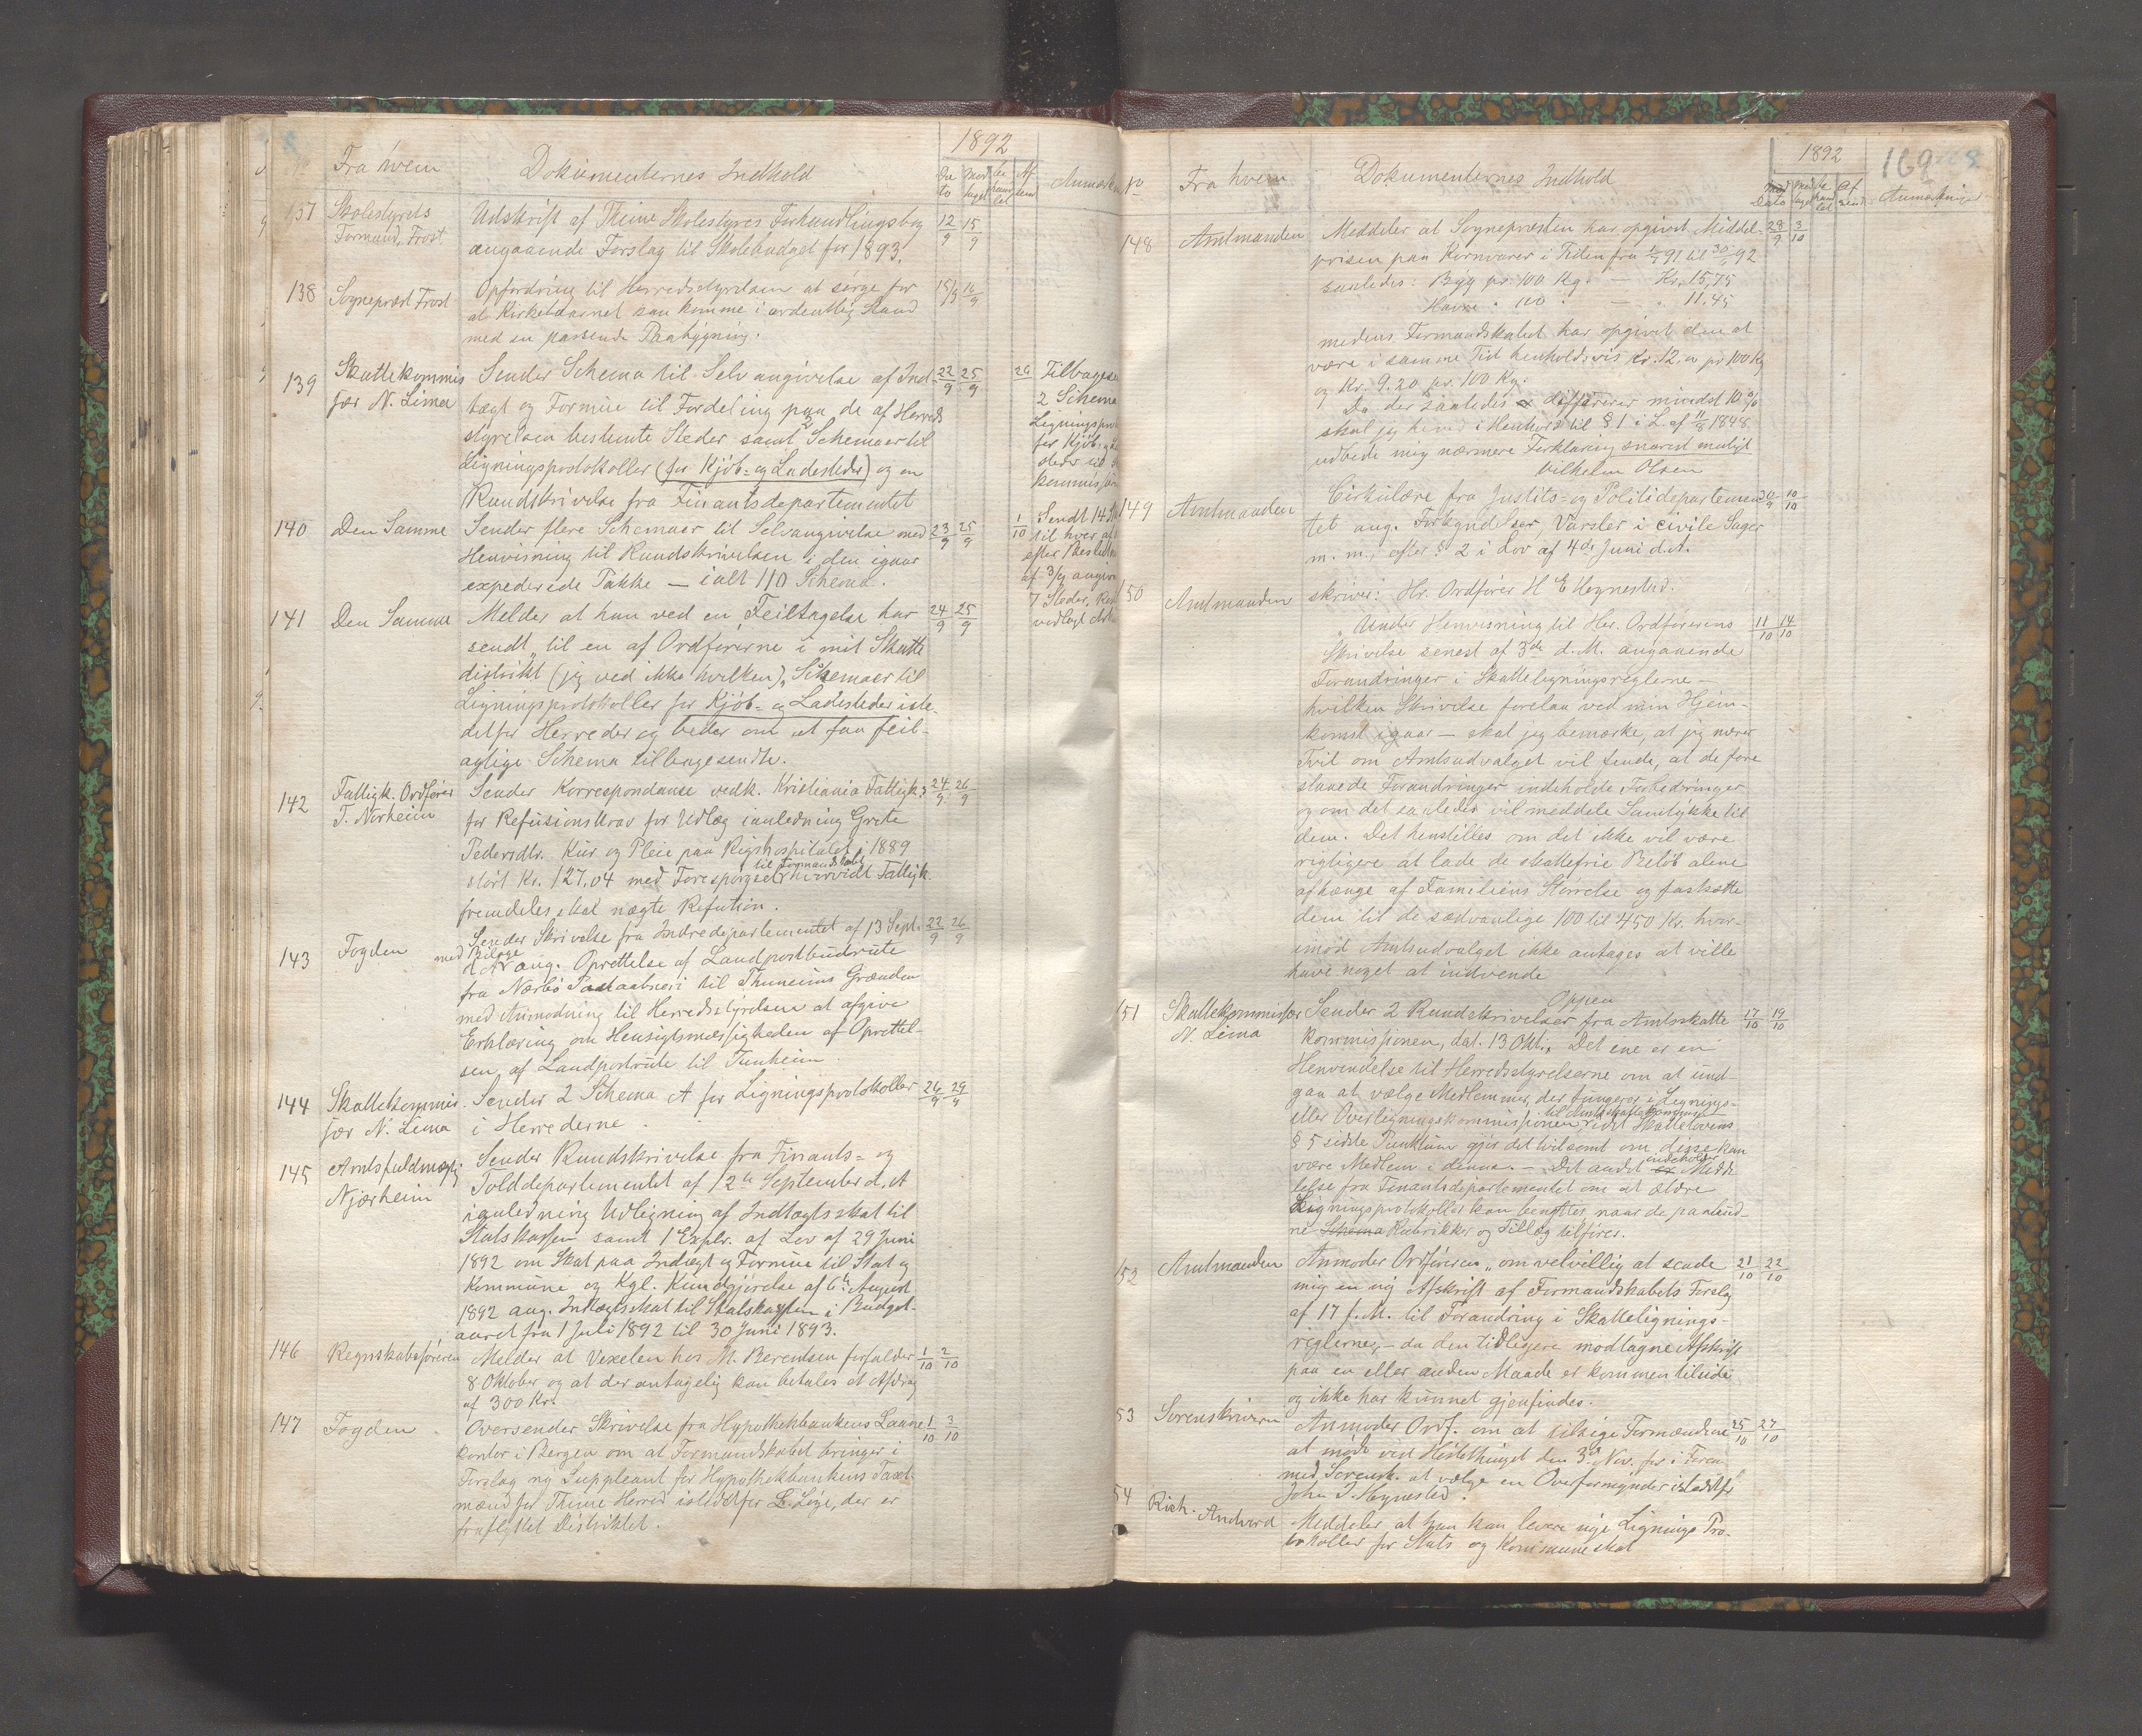 1892
Fra hvem Dokumenternes Indhold Da to Mod taget Be hand let Af sendt
137 Skolestyrets Formand, Frost Udskrift af Thime Skolestyres Forhandlingsbog 12/9 15/9
angaaende Forslag til Skolebudget for 1893.
138 Sogneprest Frost Opfordring til Herredsstyrelsen at sørge for 15/9 16/9
at Kirketaarnet kan komme i ordentlig Stand
med en passende Paabygning.
139 Skattekommis Sender Schema til Selvangivelse af Ind- 22/9 25/9 26 Tilbagese
sær N. Lima tægt og Formue til Fordeling paa de af Herreds 2 Schema
styrelsen bestemte Steder samt 2 Schemaer til Ligningspro
Ligningsprotokoller (for Kjøb- og Ladesteder) og en for Kjøb- og
Rundskrivelse fra Finantsdepartementet kommissær
140 Den Samme Sender flere Schemaer til Selvangivelse med 23/9 25/9 1/10 Sendt 14
Henvisning til Rundskrivelsen i den igaar til hver af
expederede Pakke — ialt 110 Schema. efter Beslutn
af 3/9 angive
141 Den Samme Melder at han ved en Feiltagelse har 24/9 25/9 7 Steder,
sendt „til en af Ordførerne i mit Skatte vedlagt
distrikt (jeg ved ikke hvilken)„ Schemaer til
Ligningsprotokoller for Kjøb- og Ladesteder iste-
detfor Herreder og beder om at faa feil-
agtige Schema tilbagesendte.
142 Fattigk. Ordfører Sender Korrespondanse vedk. Kristiania Fattigk.s 24/9 26/9
T. Norheim for Refusionskrav for Udlæg ianledning Grete
Pedersdtr. Kur og Pleie paa Rigshospitalet i 1889
stort Kr. 127,04 med Forespørgsel til Formandskabet hvorvidt Fattigk.
fremdeles skal nægte Refution.
143 Fogden Sender Skrivelse fra Indredepartementet af 13 Sept. 22/9 26/9
med Bilage d. A. ang. Oprettelse af Landpostbudrute
fra Nærbø Postaabneri til Thuneims Grænden
med Anmodning til Herredsstyrelsen at afgive
Erklæring om Hensigtsmæssigheden af Oprettel-
sen af Landpostrute til Tunheim.
144 Skattekommis- Sender 2 Schema A for Ligningsprotokoller 26/9 29/9
sær N. Lima i Herrederne.
145 Amtsfuldmægt Sender Rundskrivelse fra Finants- og
Njærheim Tolddepartementet af 12te September d. A
ianledning Udligning af Indtægtsskat til
Statskassen samt 1 Explr. af Lov af 29 Juni
1892 om Skat paa Indtægt og Formue til Stat og
Kommune og Kgl. Kundgjørelse af 6te August
1892 ang. Indtægtsskat til Statskassen i Budget-
aaret fra 1 Juli 1892 til 30 Juni 1893.
146 Regnskabsføreren Melder at Vexelen hos M. Berentsen forfalder 1/10 2/10
8 Oktober og at der antagelig kan betales et Afdrag
af 300 Kr.
147 Fogden Oversender Skrivelse fra Hypothekbankens Laane 1/10 3/10
kontor i Bergen om at Formandskabet bringer i
Forslag ny Suppleant for Hypothekbankens Taxt-
mænd for Thime Herred istedetfor L. Løge, der er
fraflyttet Distriktet.
1892 169
No Fra hvem Dokumenternes Indhold Dato Anmærkninger
148 Amtmanden Meddeler at Sognepræsten har opgivet Middel- 28/9 3/10
prisen paa Kornvarer i Tiden fra 1/7 91 til 30/6 92
saaledes: Byg pr. 100 Kg. — Kr. 15,75
Havre " 100 " — " 11.45
medens Formandskabet har opgivet dem at
være i samme Tid henholdsvis Kr. 12.00 pr 100 Kg
og Kr. 9.20 pr. 100 Kg.
Da der saaledes differerer mindst 10%
skal jeg herved i Henhold til § 1 i L. af 11/8 1848
udbede mig nærmere Forklaring snarest muligt
Vilhelm Olsen
149 Amtmanden Cirkulære fra Justits- og Politidepartemen 30/9 10/10
tet ang. Forkyndelser, Varsler i civile Sager
m. m., efter § 2 i Lov af 4de Juni d. A.
150 Amtmanden skriver: Hr. Ordfører H E Hognestad.
„Under Henvisning til Hr. Ordførerens 11/10 14/10
Skrivelse senest af 3die d. M. angaaende
Forandringer i Skatteligningsreglerne —
hvilken Skrivelse forelaa ved min Hjem-
komst igaar — skal jeg bemærke, at jeg nærer
Tvil om Amtsudvalget vil finde, at de fore
slaaede Forandringer indeholde Forbedringer
og om det saaledes vil meddele Samtykke til
dem. Det henstilles om det ikke vil være
rigtigere at lade de skattefrie Beløb alene
afhænge af Familiens Størrelse og fastsætte
dem til de sædvanlige 100 til 450 Kr. hvor-
imod Amtsudvalget ikke antages at ville
have noget at indvende
Oppen
151 Skattekommissær Sender 2 Rundskrivelser fra Amtsskatte 17/10 19/10
N. Lima kommissionen, dat. 13 Okt. Det ene er en
Henvendelse til Herredsstyrelserne om at und-
gaa at vælge Medlemmer, der fungerer i Lignings-
eller Overligningskommissionen til Amtsskattekommis. idet Skattelovens
§ 5 sidste Punktum gjør det tvilsomt om disse kan
være Medlem i denne. — Det andet indeholder Medde
lelse fra Finantsdepartementet om at ældre
Ligningsprotokoller kan benyttes naar de paabud-
ne Schema Rubrikker og Tillæg tilføres.
152 Amtmanden Anmoder Ordføreren „om velvillig at sende 21/10 22/10
mig en ny Afskrift af Formandskabets Forslag
af 17 f. M. til Forandring i Skattelignings-
reglerne, — da den tidligere modtagne Afskrift
paa en eller anden Maade er kommen tilside
og ikke har kunnet gjenfindes.
153 Sorenskriveren Anmoder Ordf. om at tilsige Formændene 25/10 27/10
at møde ved Høstethinget den 3die Nov. for i Foren
med Sorensk. at vælge en Overformynder istedetfor
John T. Hognestad.
154 Rich. Andvord Meddeler at han kan levere nye Lignings Pro-
tokoller for Stats og Kommuneskat